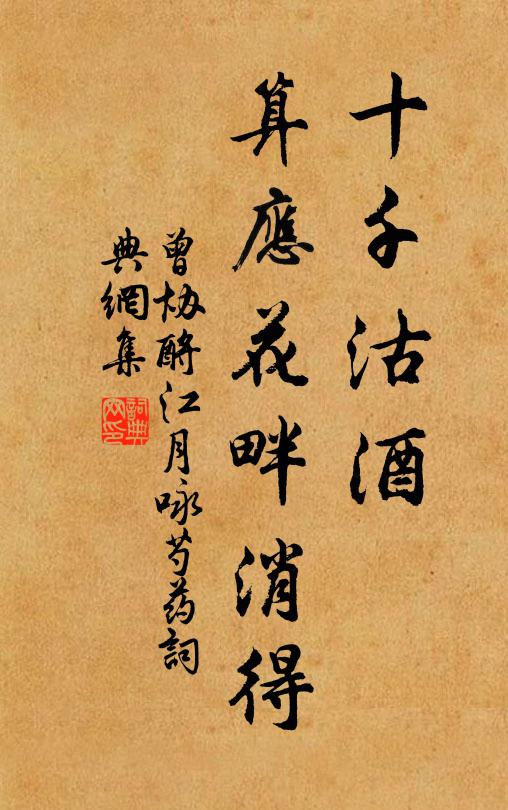 十千沽酒
算應花畔消得
曾協酹江月咏芍药詞
典網集
詞典
网印